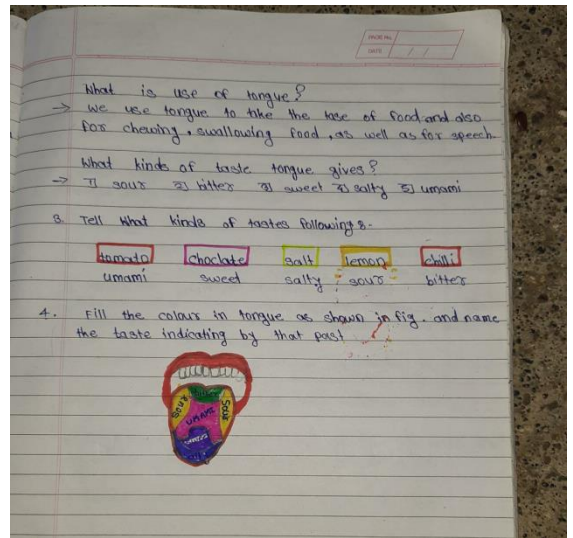 PAGE No.
DATE / /
What is use of tongue?
→ We use tongue to take the tase of food and also
for chewing, swallowing food, as well as for speech.
What kinds of taste tongue gives?
→ १) sour २) bitter ३) sweet ४) salty ५) umami
3. Tell What kinds of tastes following :-
tomato choclate salt lemon chilli
umami sweet salty sour bitter
4. Fill the colour in tongue as shown in fig. and name
the taste indicating by that past
SOUR SOUR
UMAMI